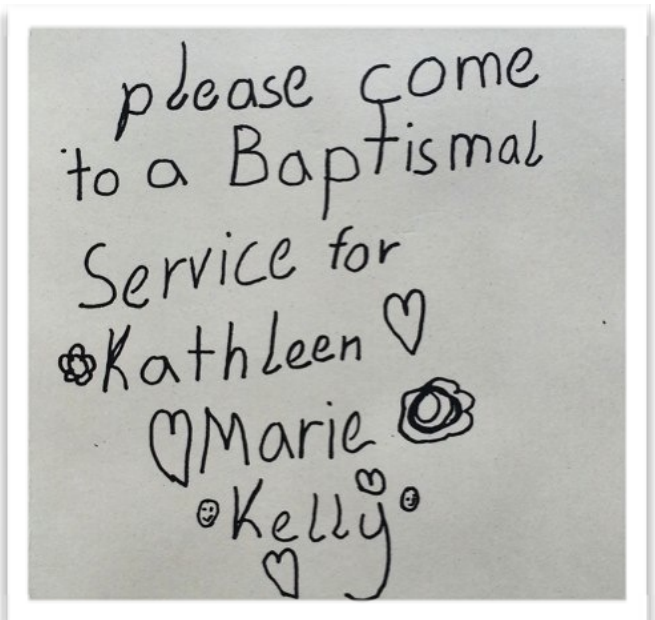 please come
to a Baptismal
Service for
Kathleen
Marie
Kelly